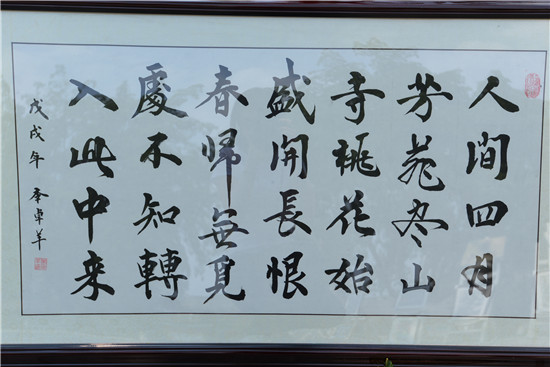 人間四月
芳菲尽山
寺桃花始
盛開長恨
春帰無覓
處不知轉
入此中来
戊戌年